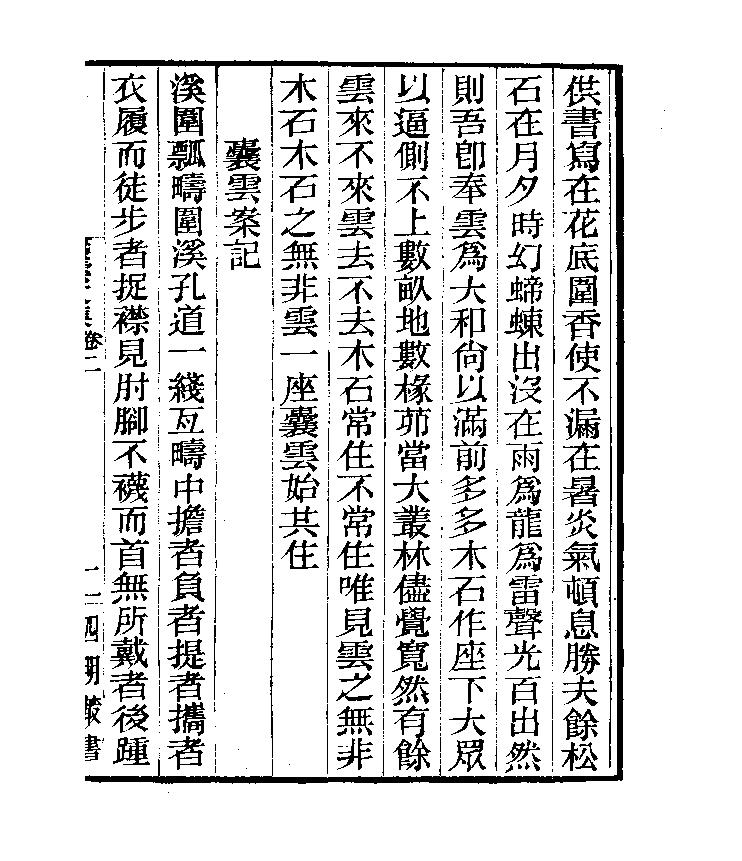 供書寫在花底圍香使不漏在暑炎氣頓息勝夫餘松
石在月夕時幻蝃蝀出沒在雨為龍為雷聲光百出然
則吾卽奉雲爲大和尙以滿前多多木石作座下大眾
以逼側不上數畝地數椽茆當大叢林儘覺寬然有餘
雲來不來雲去不去木石常住不常住唯見雲之無非
木石木石之無非雲一座囊雲始共住
囊雲案記
溪圍瓢疇圍溪孔道一綫亙疇中擔者負者提者攜者
衣履而徒步者捉襟見肘腳不襪而首無所戴者後踵
集卷二
二 四明叢書